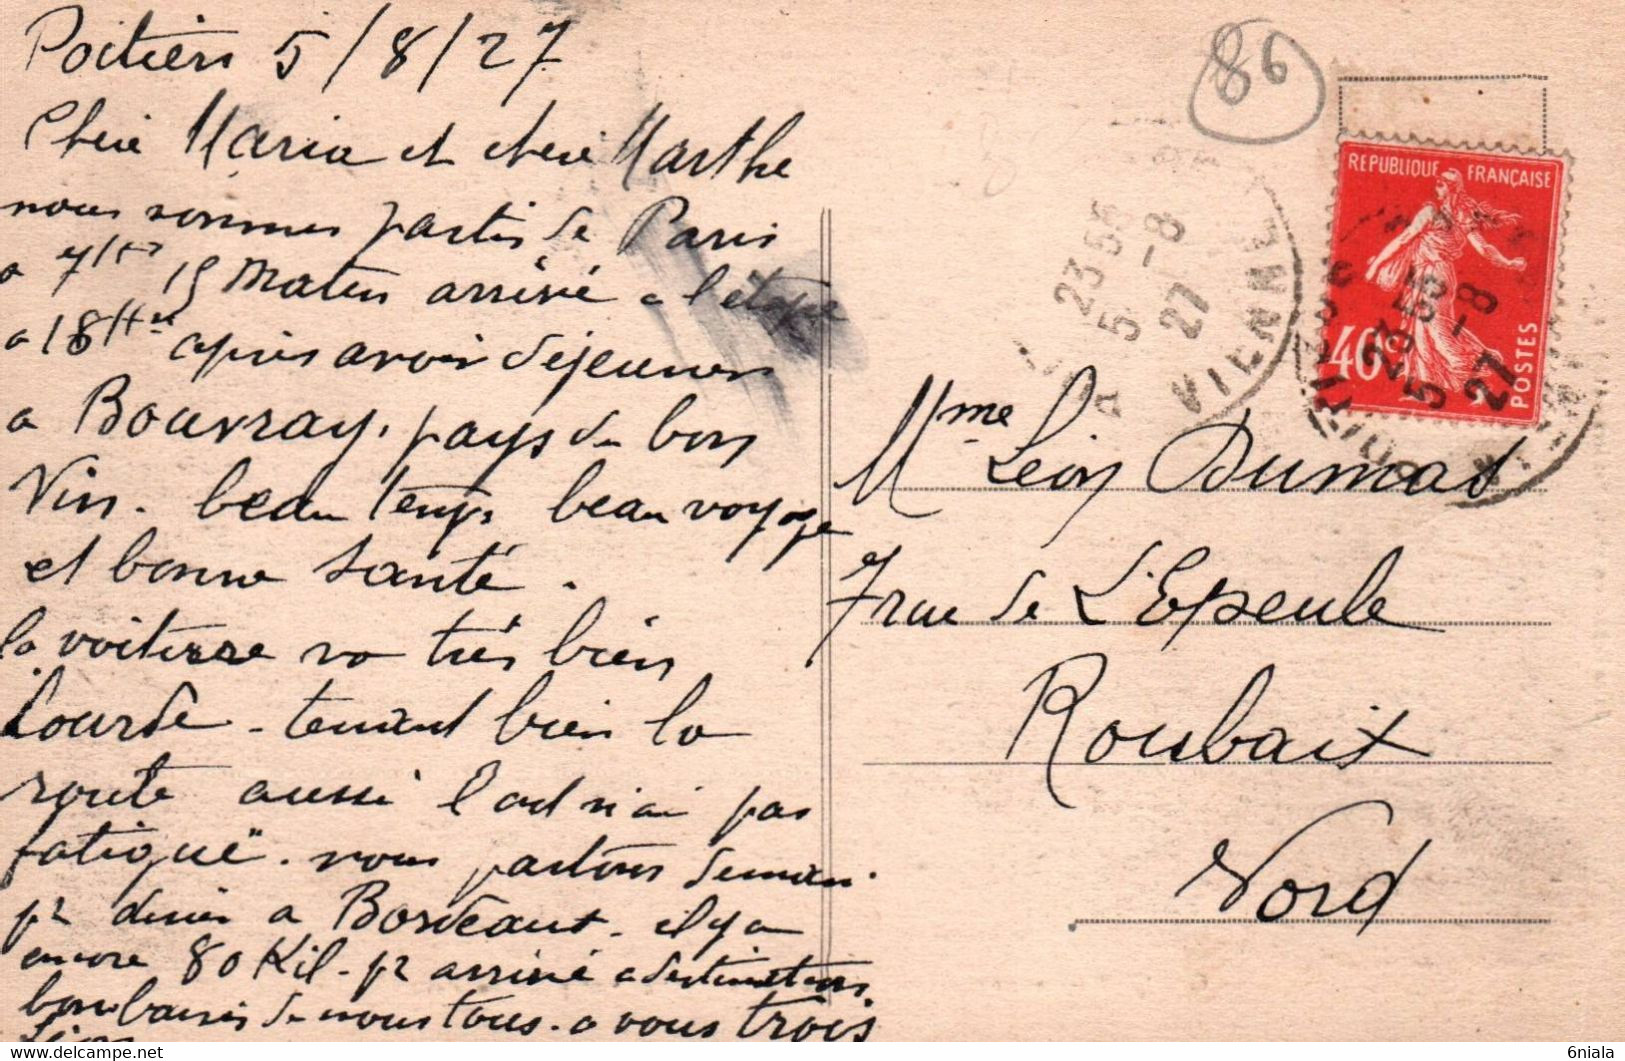 Poitiers 5/8/27
Chère Maria et chère Marthe
nous sommes partis de Paris
a 7 hrs 15 Matin arrivé a l'étape
a 18 hre après avoir déjeuner
a Bouvray. pays du bon
Vin. beau temps beau voyage
et bonne Santé.
la voiture va très bien
Lourde - tenant bien la
route aussi l'on n'ai pas
fatigué. nous partons demain
pr diner a Bordeaux. il y a
encore 80 Kil. pr arrivé a destination.
bon baisers de nous tous. a vous trois
Léon
86
REPUBLIQUE FRANÇAISE
40c
POSTES
23 55
5 -8
27
VIENNE
23 55
5 -8
27
Mme Léon Dumas
7 rue de L'Epeule
Roubaix
Nord
6niala